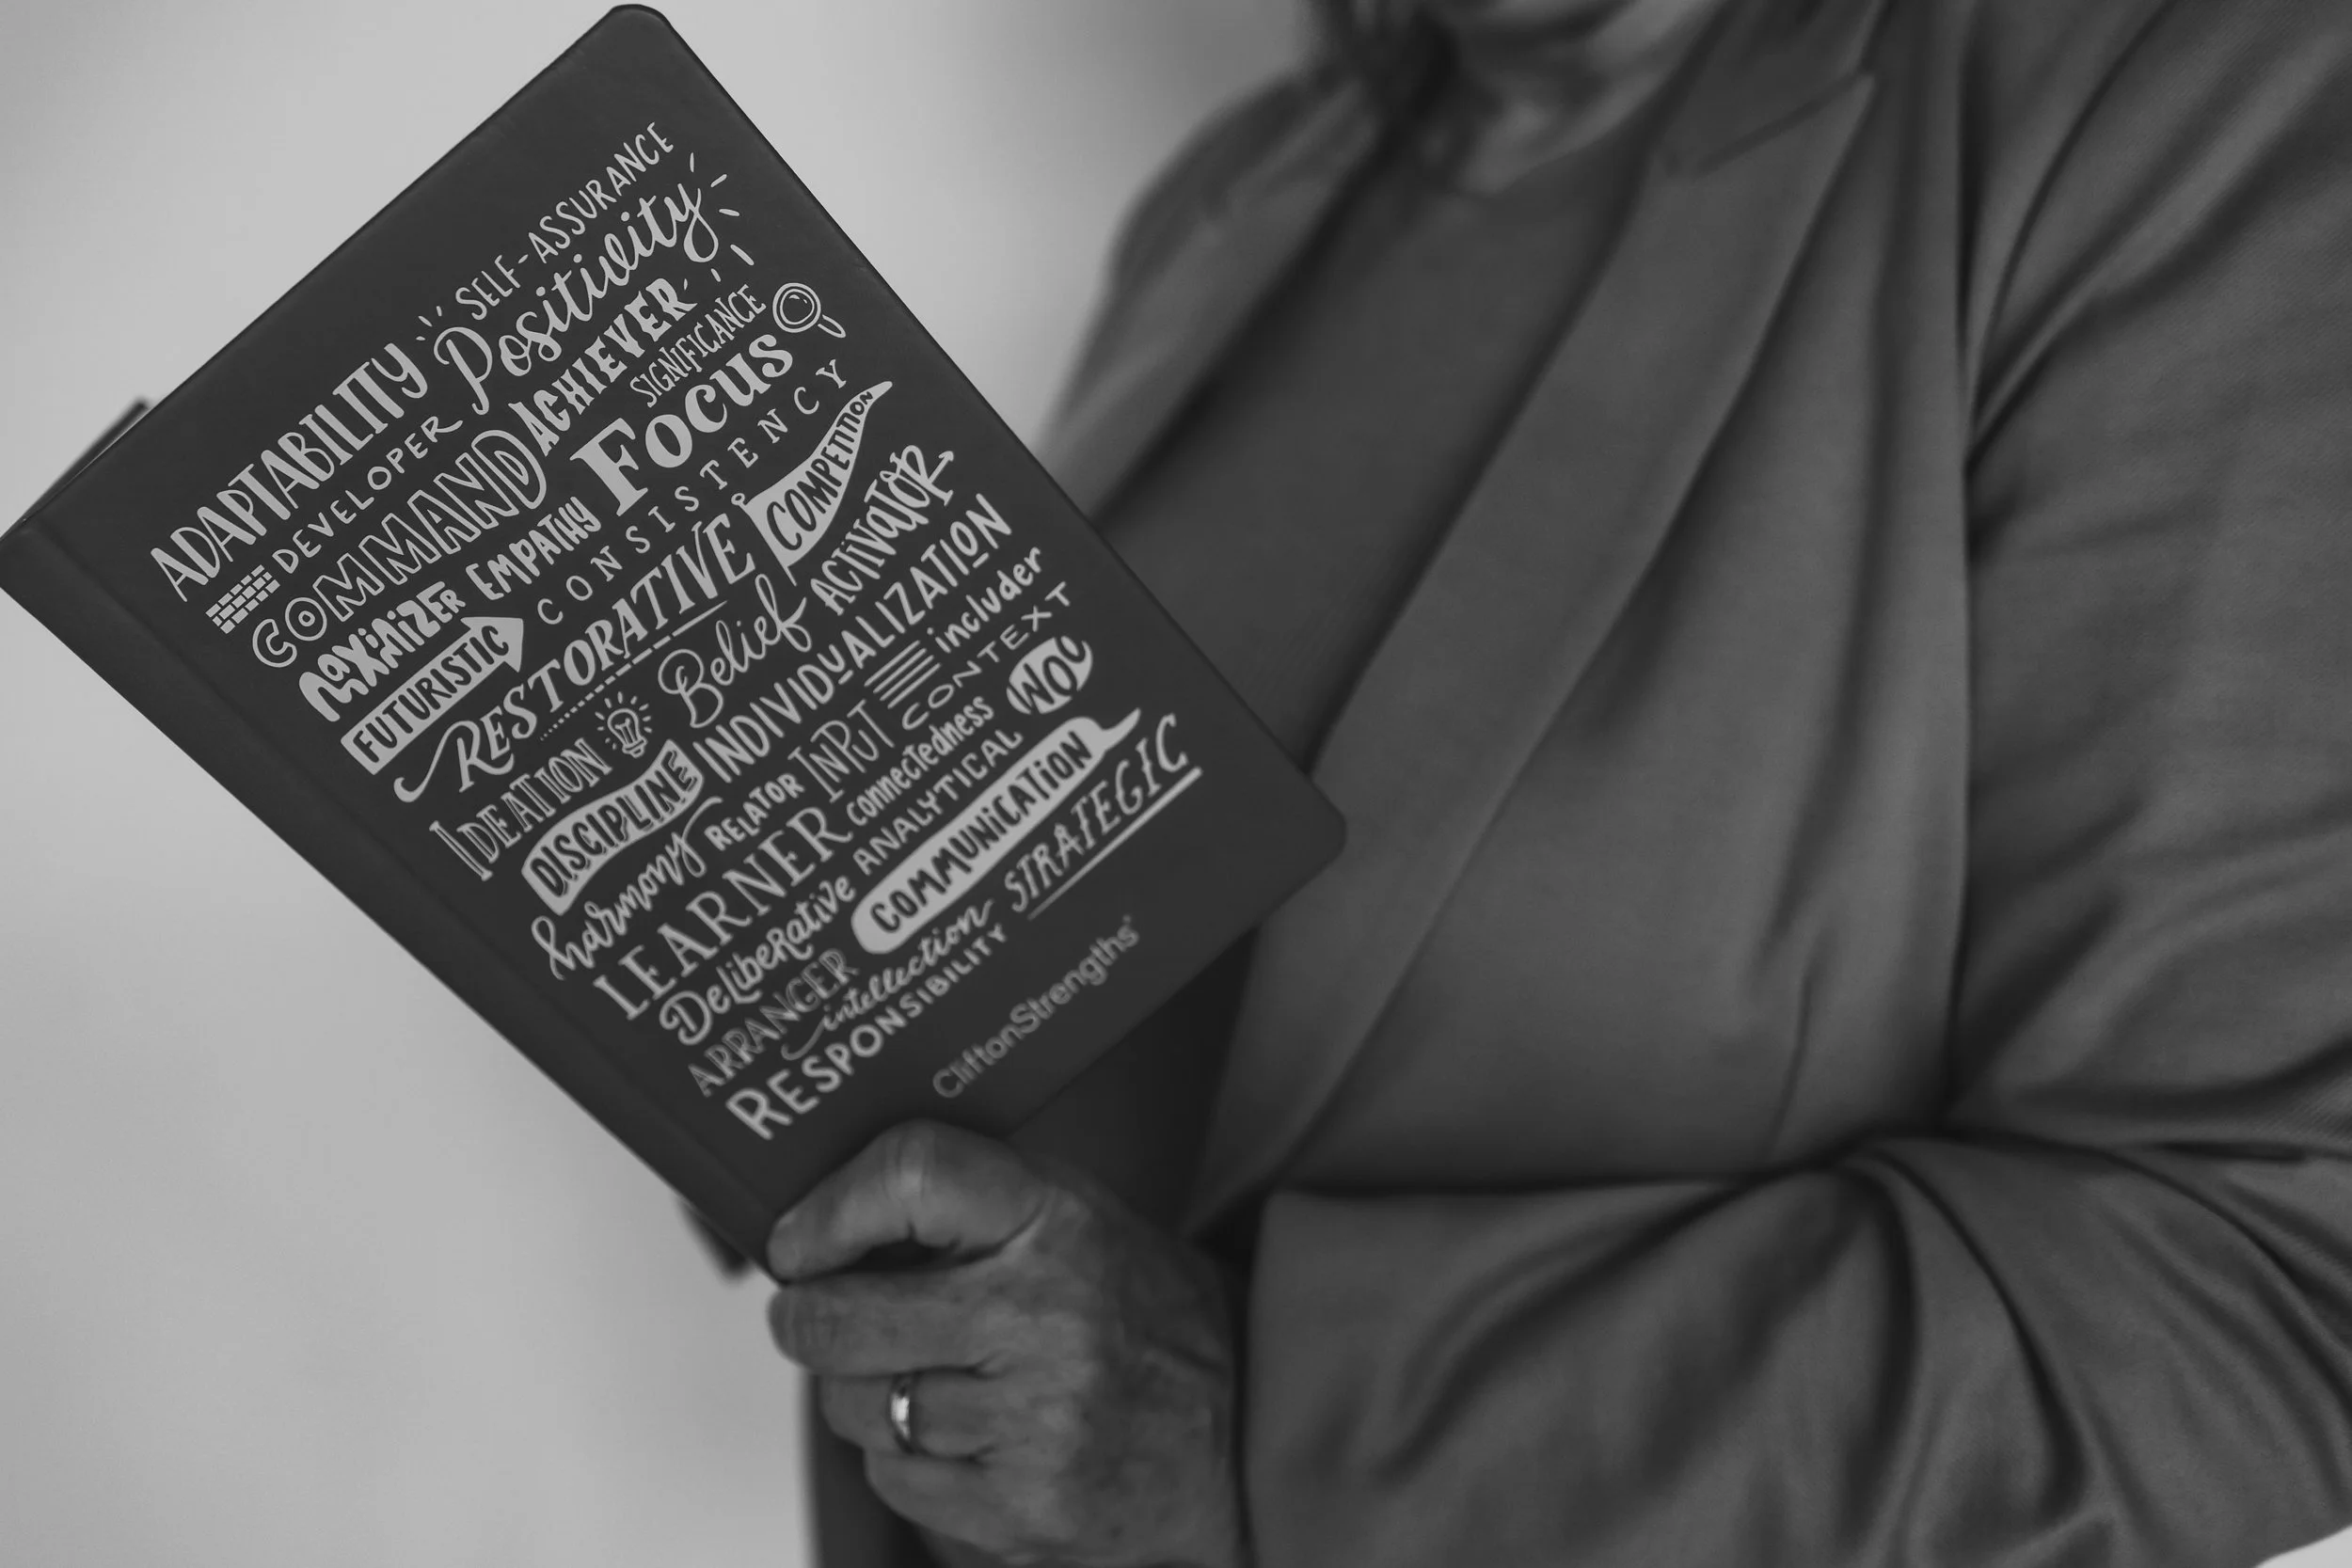 SELF-ASSURANCE
ADAPTABILITY Positivity
DEVELOPER ACHIEVER
COMMAND SIGNIFICANCE
MAXIMIZER EMPATHY FOCUS
FUTURISTIC CONSISTENCY
RESTORATIVE COMPETITION
IDEATION Belief ACTIVATOR
DISCIPLINE INDIVIDUALIZATION
harmony RELATOR INPUT includer
CONTEXT
LEARNER connectedness WOO
DELiBERative ANALYTICAL
ARRANGER COMMUNiCATiON
intellection STRATEGIC
RESPONSIBILITY
CliftonStrengths®